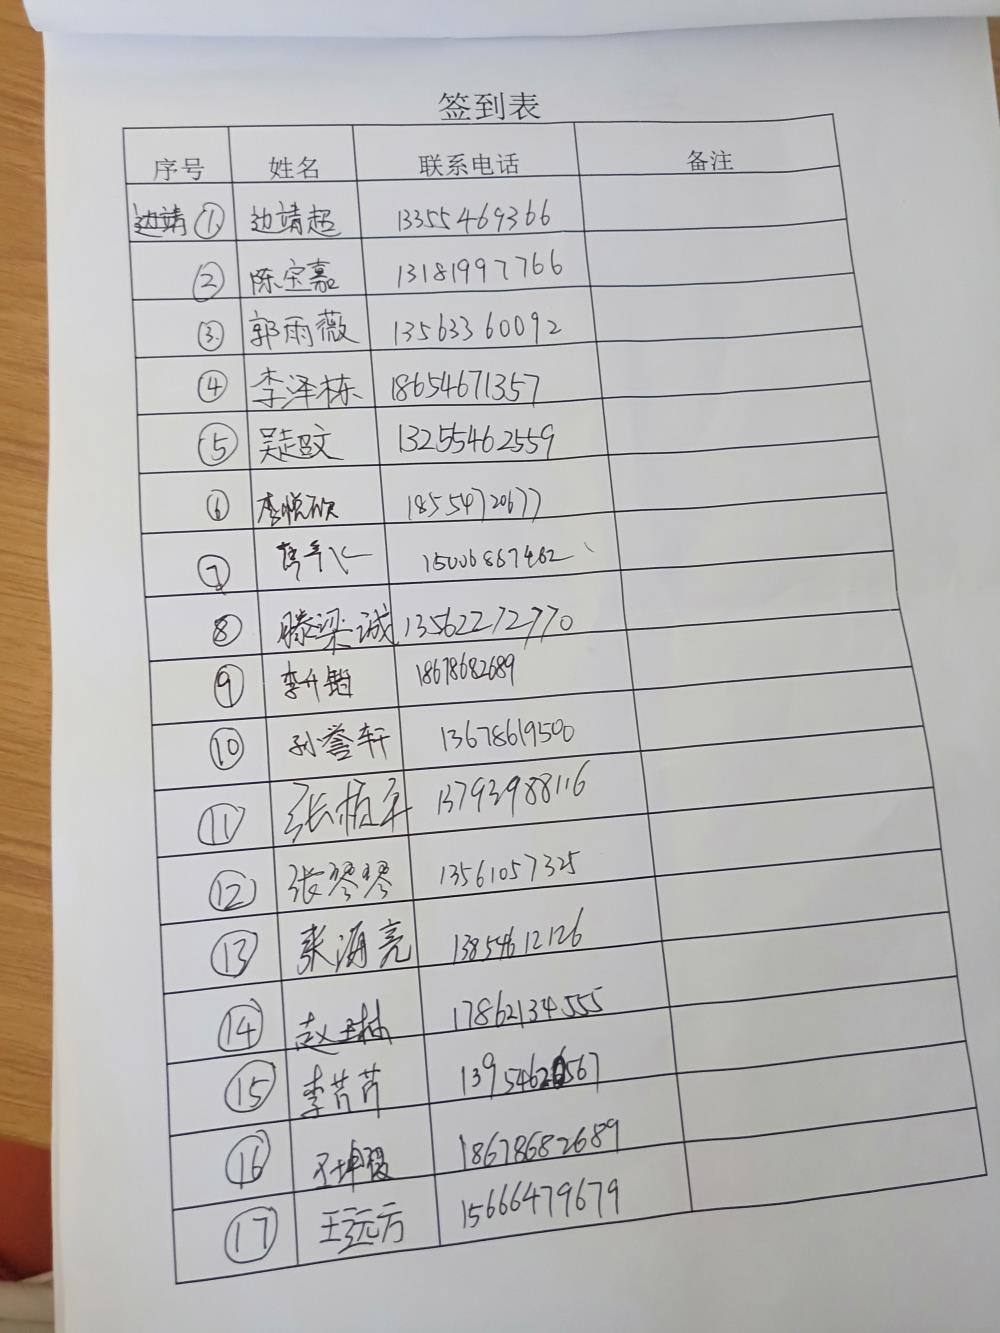 签到表
序号 姓名 联系电话 备注
边靖 ① 边靖超 13355469366
② 陈宝嘉 13181997766
③ 郭雨薇 13563360092
④ 李泽栋 18654671357
⑤ 吴超文 13255462559
⑥ 李悦欣 18554720677
⑦ 15006867462
⑧ 滕梁诚 13562272770
⑨ 李升 18678682689
⑩ 孙誉轩 13678619500
⑪ 张 13793988116
⑫ 张琴琴 13561057325
⑬ 张海亮 13854612126
⑭ 赵玉林 17862134555
⑮ 李芹芹 13954620567
⑯ 王坤 18678682689
⑰ 王远方 15666479679